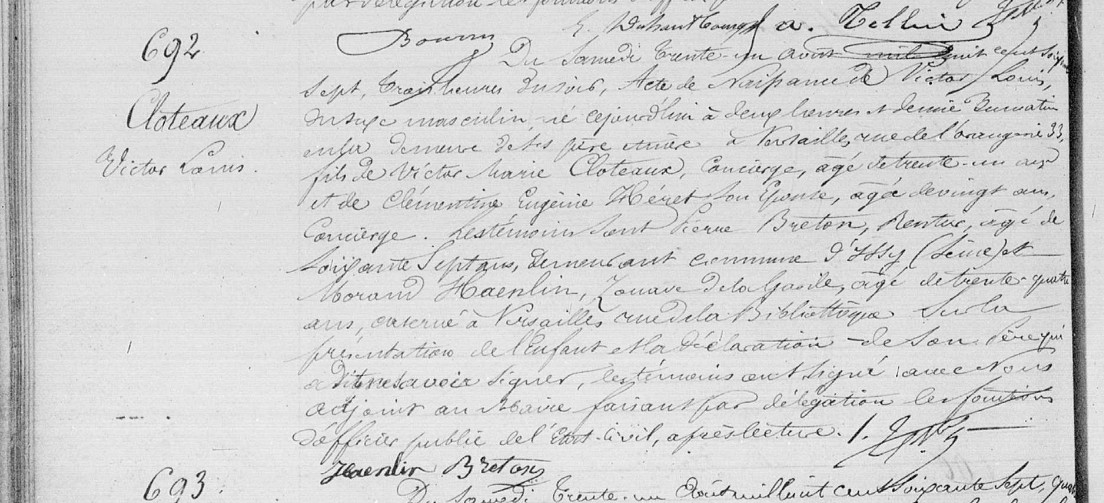 692
Cloteaux
Victor Louis.
Du Samedi trente-un août mil huit cent soixante
sept, trois heures du soir, Acte de Naissance de Victor Louis,
du sexe masculin, né cejourd'hui à deux heures et demie du matin
en la demeure de ses père et mère à Versailles, rue de l'orangerie 33,
fils de Victor Marie Cloteaux, Concierge, âgé de trente-un ans
et de Clémentine Eugénie Héret son Epouse, âgée de vingt ans,
Concierge. Les témoins sont Pierre Breton, Rentier, âgé de
soixante Sept ans, demeurant commune d'Issy (Seine) et
Morand Haenlin, Zouave de la Garde, âgé de trente-quatre
ans, caserné à Versailles rue de la Bibliothèque Sur la
présentation de l'Enfant et la déclaration de son Père qui
a dit ne savoir signer, les témoins ont signé avec Nous
adjoint au Maire faisant par délégation les fonctions
d'officier public de l'Etat-Civil, après lecture. /.
Haenlin Breton
693.
Du Samedi trente-un Août mil huit cent soixante Sept,